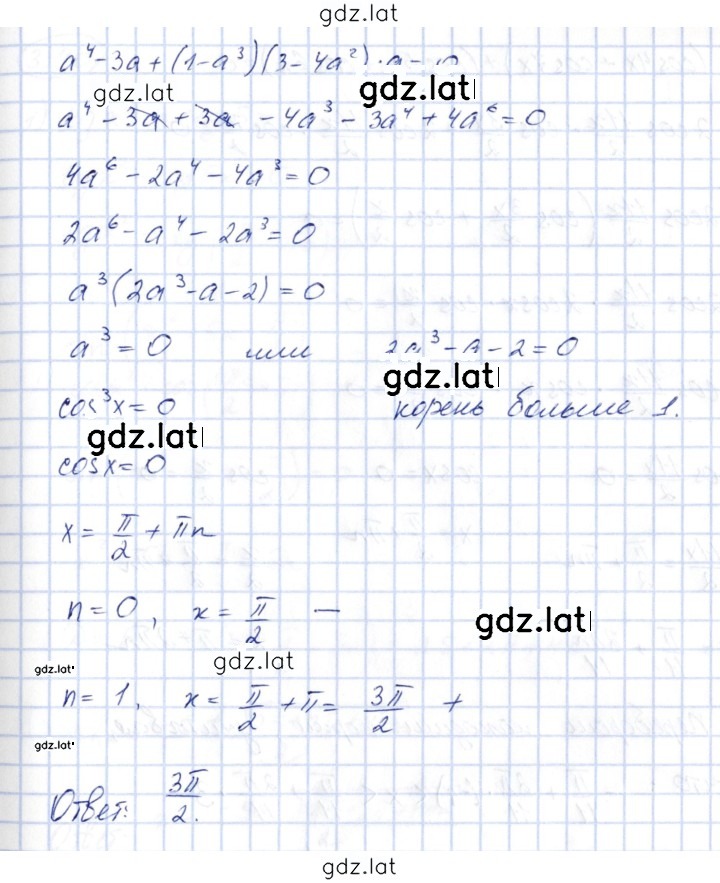 gdz.lat
a⁴ - 3a + (1 - a³)(3 - 4a²) · a = 0
gdz.lat gdz.lat
a⁴ - 3a + 3a - 4a³ - 3a⁴ + 4a⁶ = 0
4a⁶ - 2a⁴ - 4a³ = 0
2a⁶ - a⁴ - 2a³ = 0
a³(2a³ - a - 2) = 0
a³ = 0 или 2a³ - a - 2 = 0
gdz.lat
cos³x = 0 корень больше 1.
gdz.lat
cosx = 0
x = π/2 + πn
n = 0, x = π/2 —
gdz.lat
gdz.lat
gdz.lat
n = 1, x = π/2 + π = 3π/2 +
gdz.lat
Ответ: 3π/2.
gdz.lat